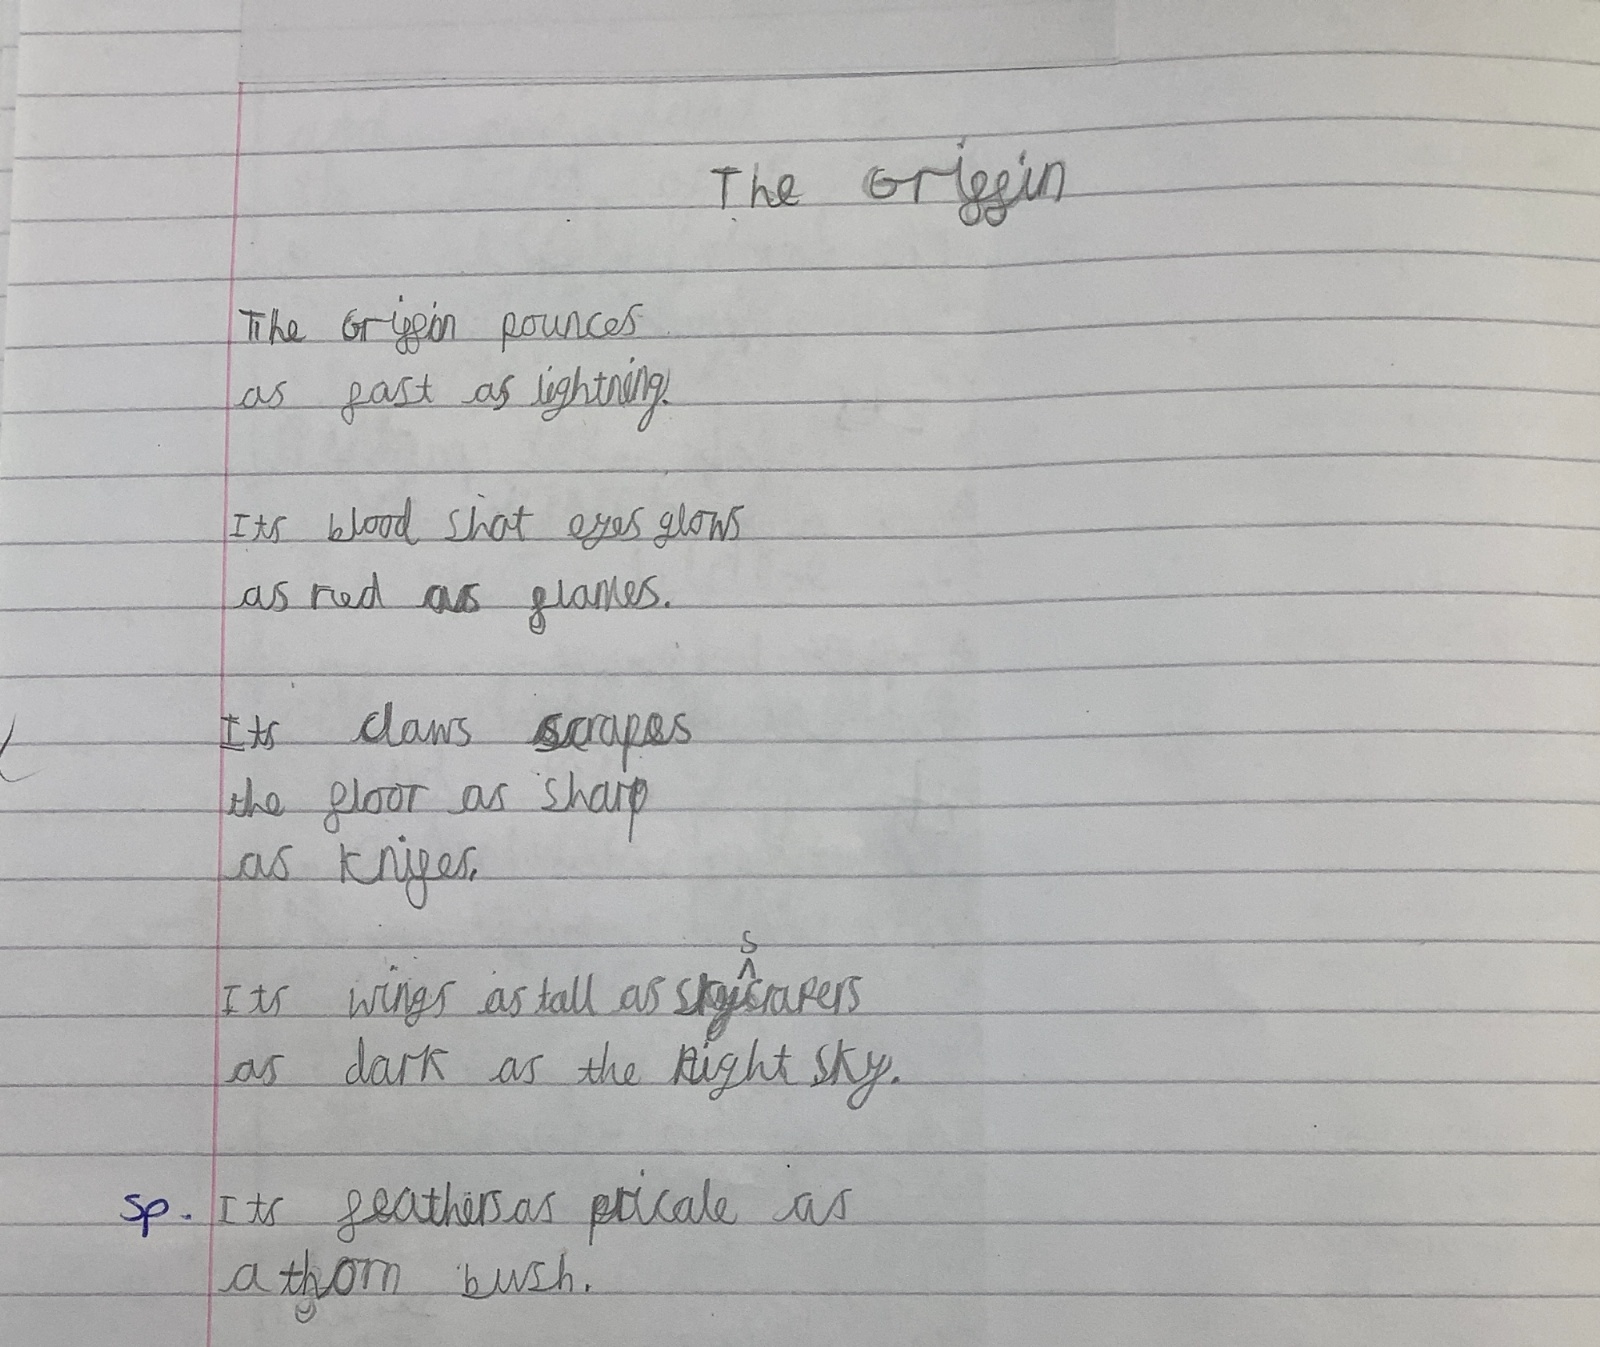 The Griffin
The Griffin pounces
as fast as lightning.
Its blood shot eyes glows
as red as flames.
Its claws scrapes
the floor as sharp
as knifes.
Its wings as tall as skyscrapers
as dark as the night sky.
sp. Its feathers as pricale as
a thorn bush.